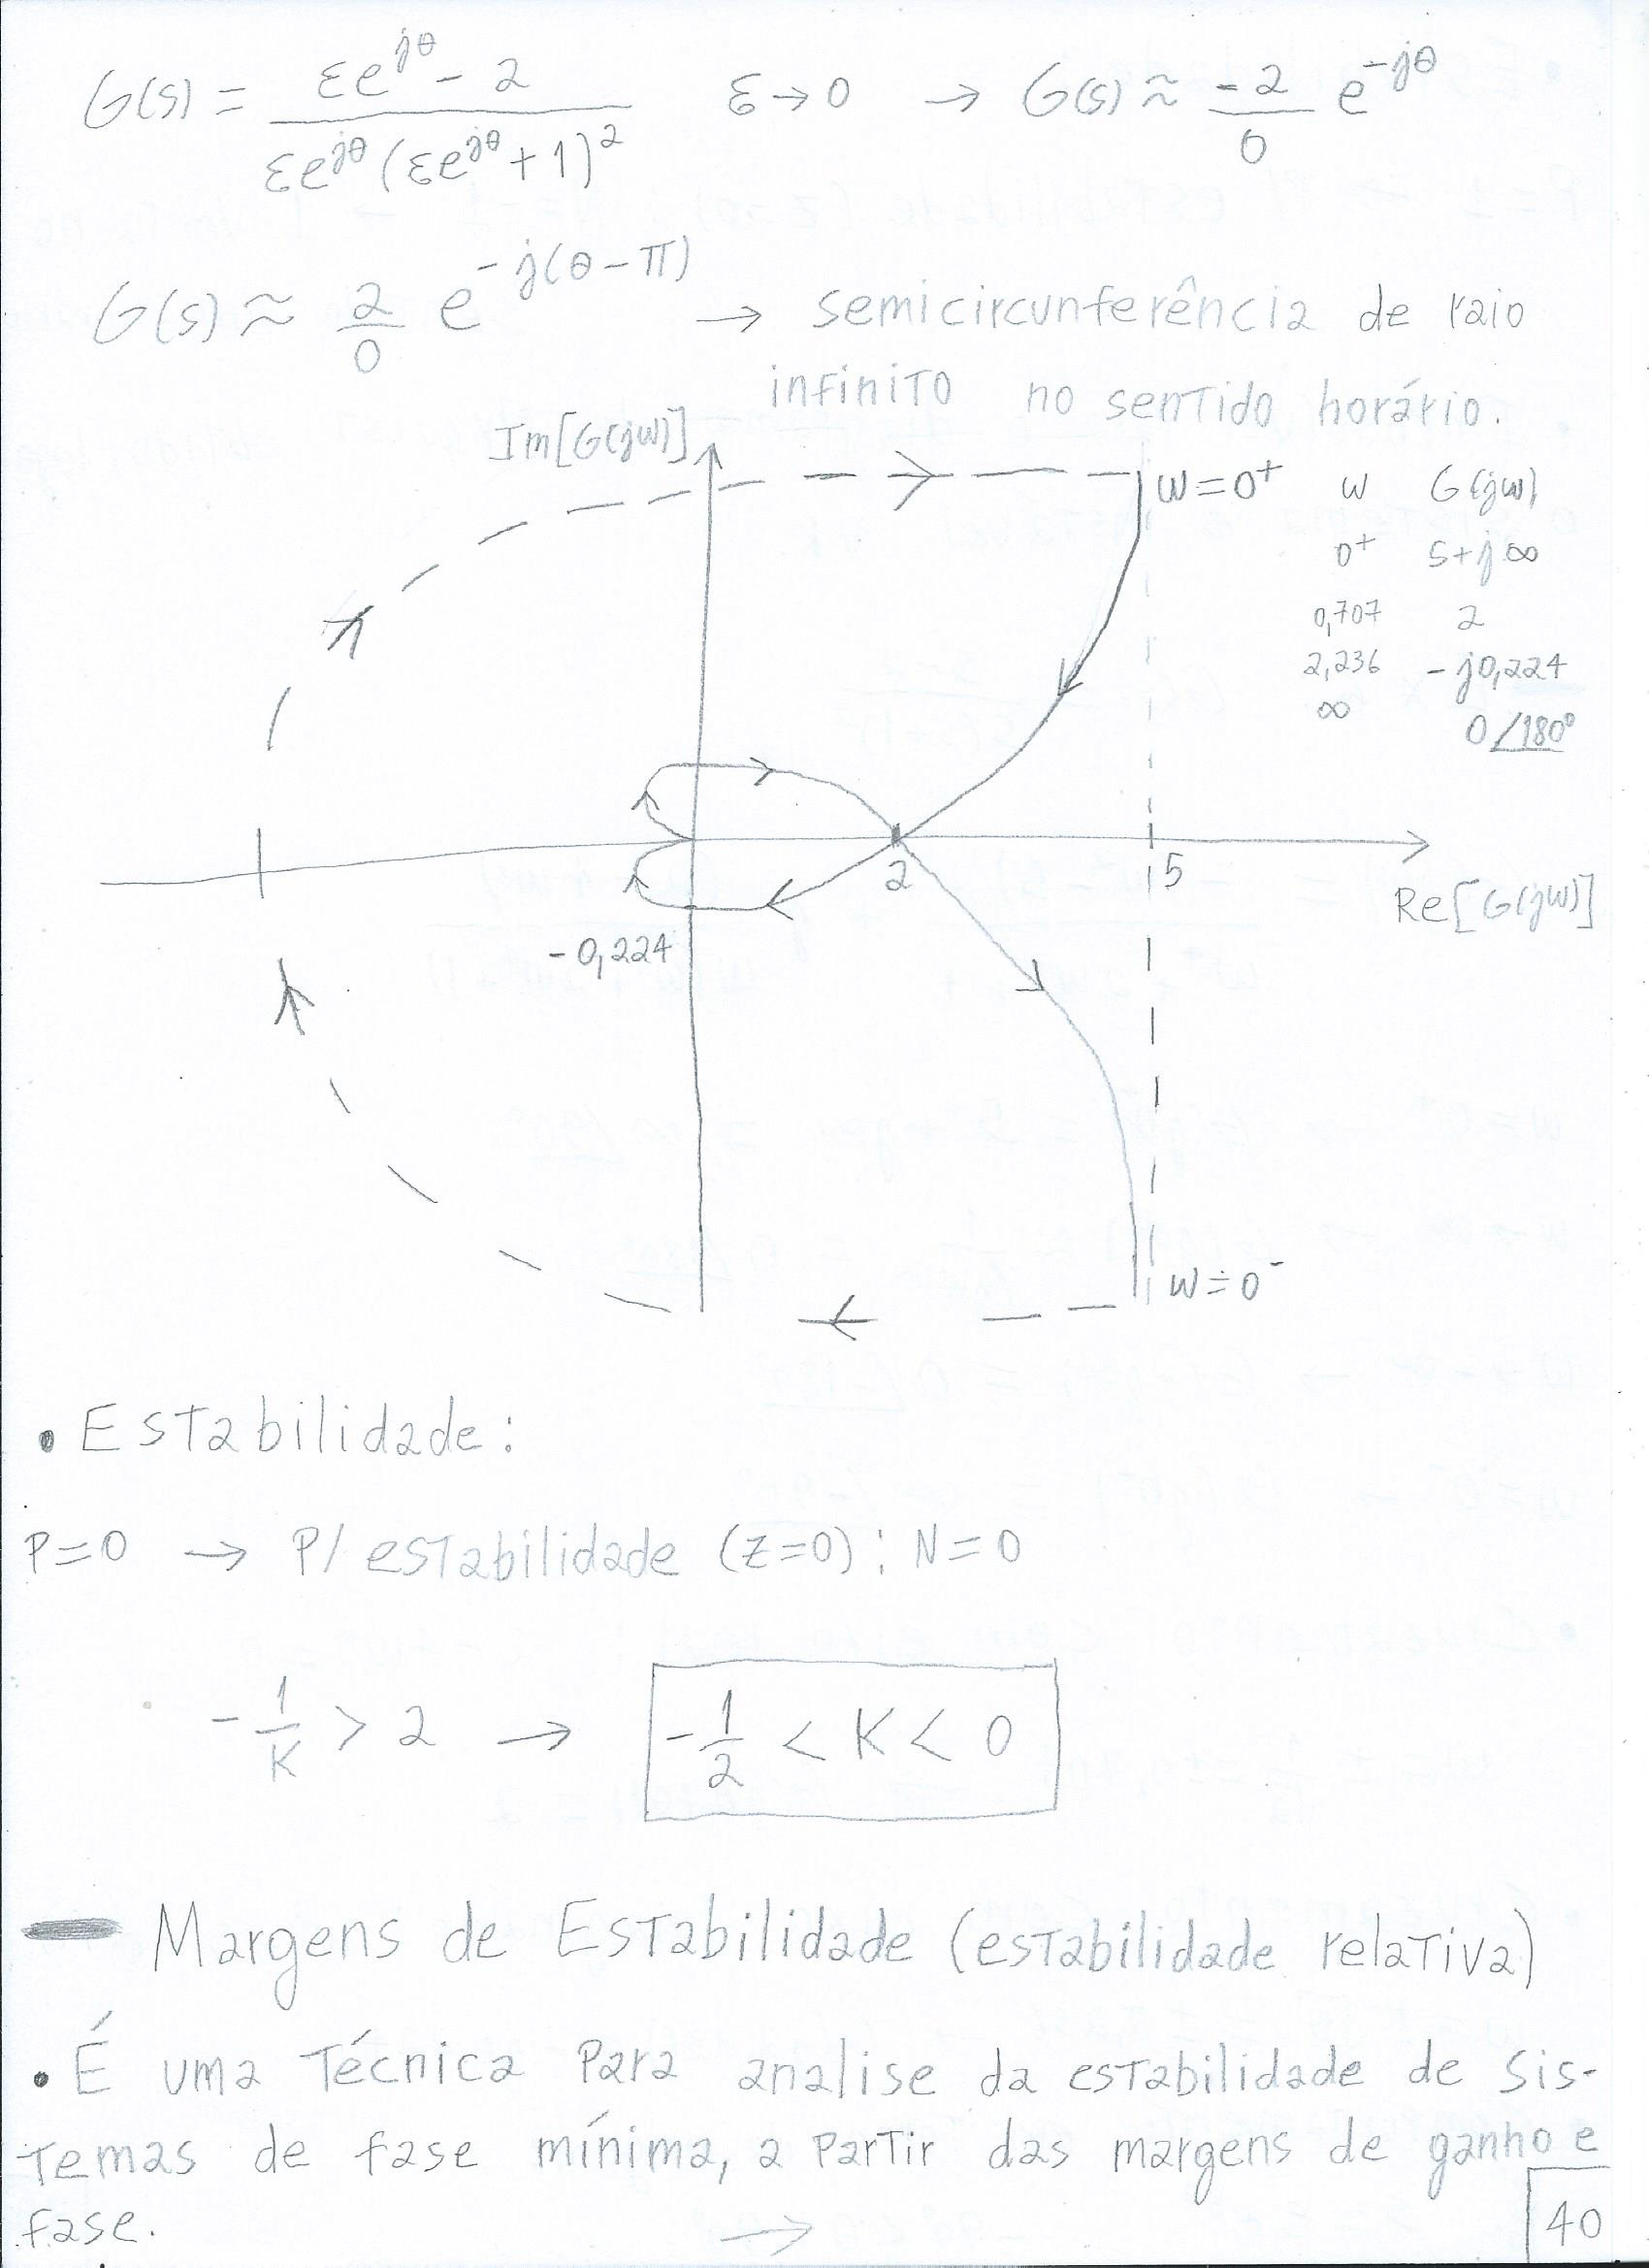 G(s) = (εe^{jθ} - 2) / (εe^{jθ} (εe^{jθ} + 1)^2)   ε → 0 → G(s) ≈ (-2/0) e^{-jθ}
G(s) ≈ (2/0) e^{-j(θ-π)} → semicircunferência de raio
infinito no sentido horário.
Im[G(jw)]
w=0⁺
w G(jw)
0⁺ 5+j∞
0,707 2
2,236 -j0,224
∞ 0∠180°
2
5
Re[G(jw)]
-0,224
w=0⁻
• Estabilidade:
P=0 → P/ estabilidade (Z=0): N=0
-1/K > 2 → -1/2 < K < 0
— Margens de Estabilidade (estabilidade relativa)
• É uma Técnica Para analise da estabilidade de sis-
temas de fase mínima, a partir das margens de ganho e
fase. →
40